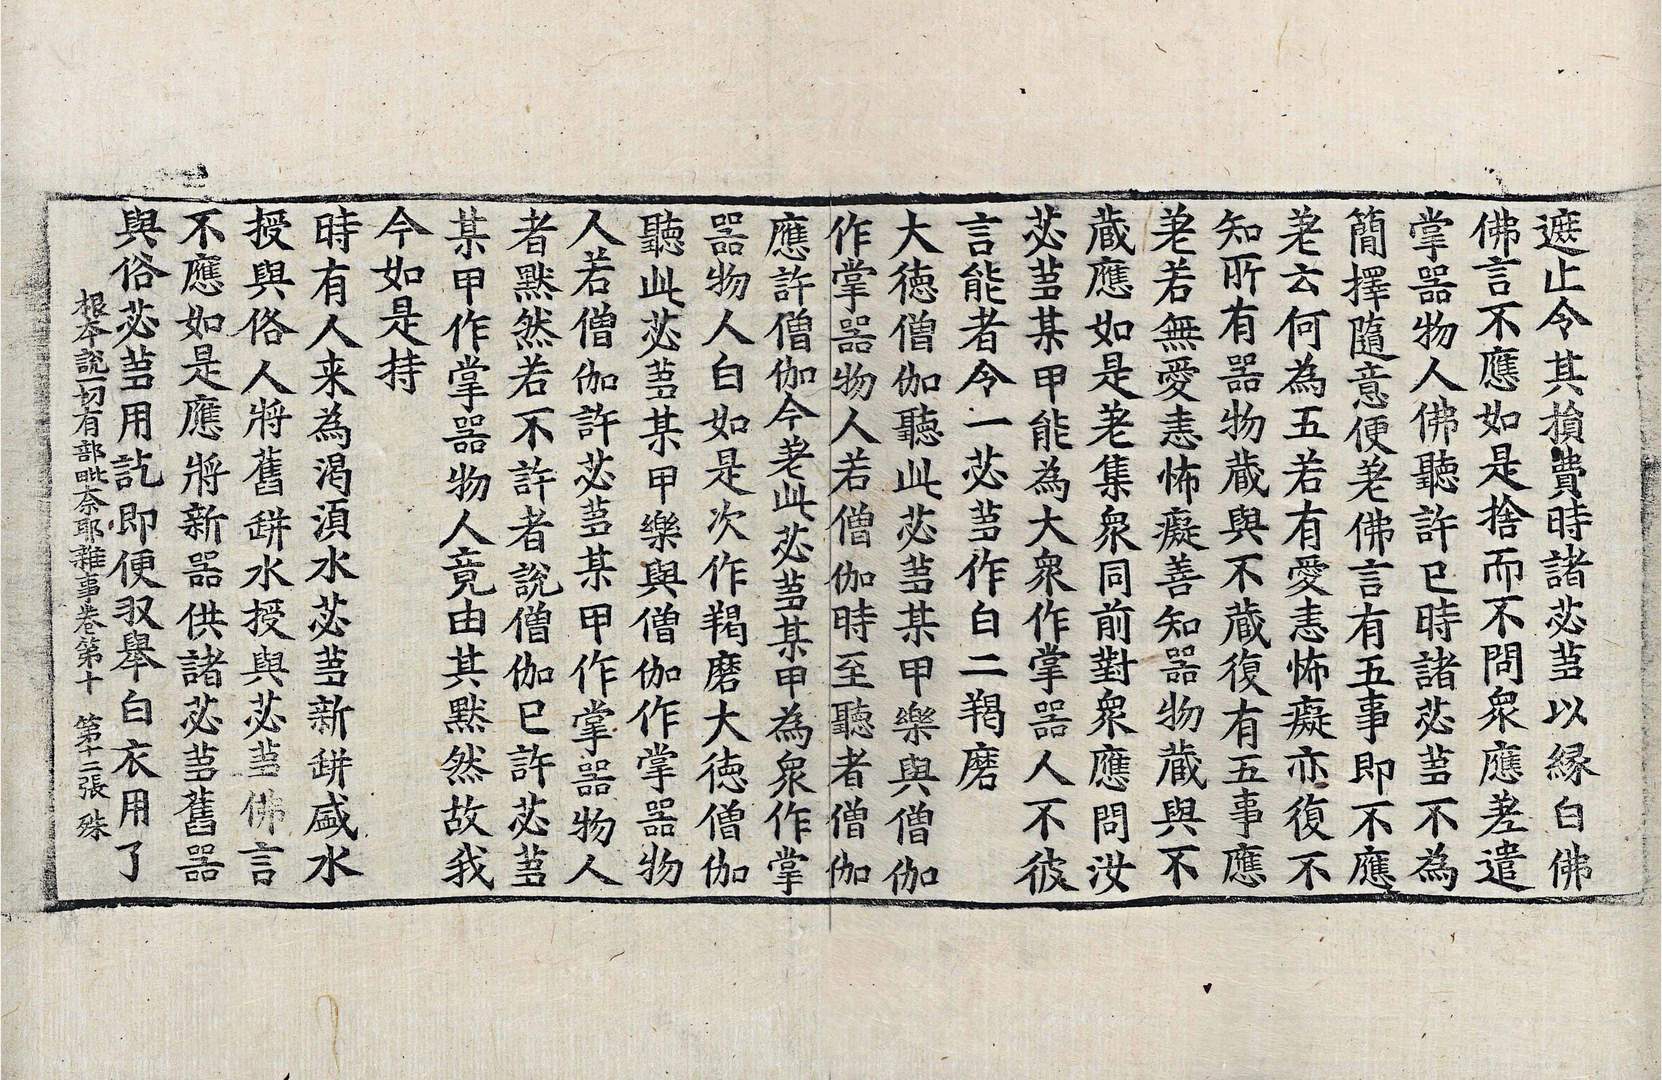 遮止令其損費時諸苾芻以緣白佛
佛言不應如是捨而不問衆應差遣
掌器物人佛聽許已時諸苾芻不為
簡擇隨意便差佛言有五事即不應
差云何為五若有愛恚怖癡亦復不
知所有器物蔵與不蔵復有五事應
差若無愛恚怖癡善知器物蔵與不
蔵應如是差集衆同前對衆應問汝
苾芻某甲能為大衆作掌器人不彼
言能者令一苾芻作白二羯磨
大徳僧伽聽此苾芻某甲樂與僧伽
作掌器物人若僧伽時至聽者僧伽
應許僧伽今差此苾芻某甲為衆作掌
器物人白如是次作羯磨大徳僧伽
聽此苾芻某甲樂與僧伽作掌器物
人若僧伽許苾芻某甲作掌器物人
者默然若不許者說僧伽已許苾芻
某甲作掌器物人竟由其默然故我
今如是持
時有人来為渴湏水苾芻新缾盛水
授與俗人將舊缾水授與苾芻佛言
不應如是應將新器供諸苾芻舊器
與俗苾芻用訖即便収舉白衣用了
根本說一切有部毗奈耶雜事卷第十 第十二張 殊